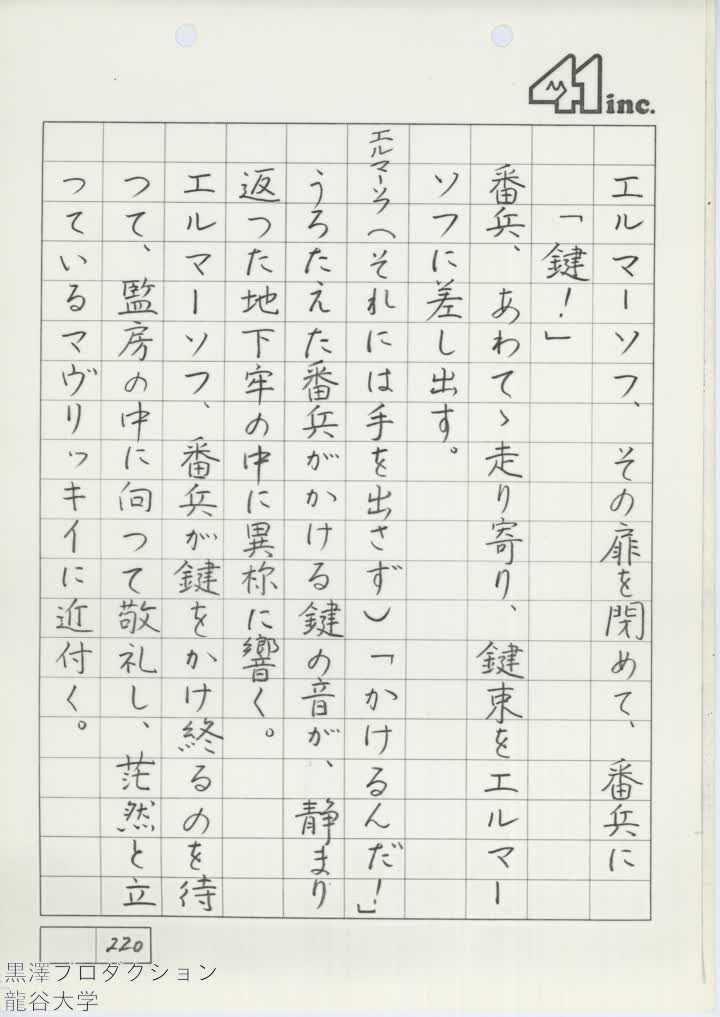 41 inc.
エルマーソフ、その扉を閉めて、番兵に
「鍵!」
番兵、あわてゝ走り寄り、鍵束をエルマー
ソフに差し出す。
エルマーソフ(それには手を出さず)「かけるんだ!」
うろたえた番兵がかける鍵の音が、静まり
返つた地下牢の中に異様に響く。
エルマーソフ、番兵が鍵をかけ終るのを待
つて、監房の中に向つて敬礼し、茫然と立
つているマヴリッキイに近付く。
220
黒澤プロダクション
龍谷大学